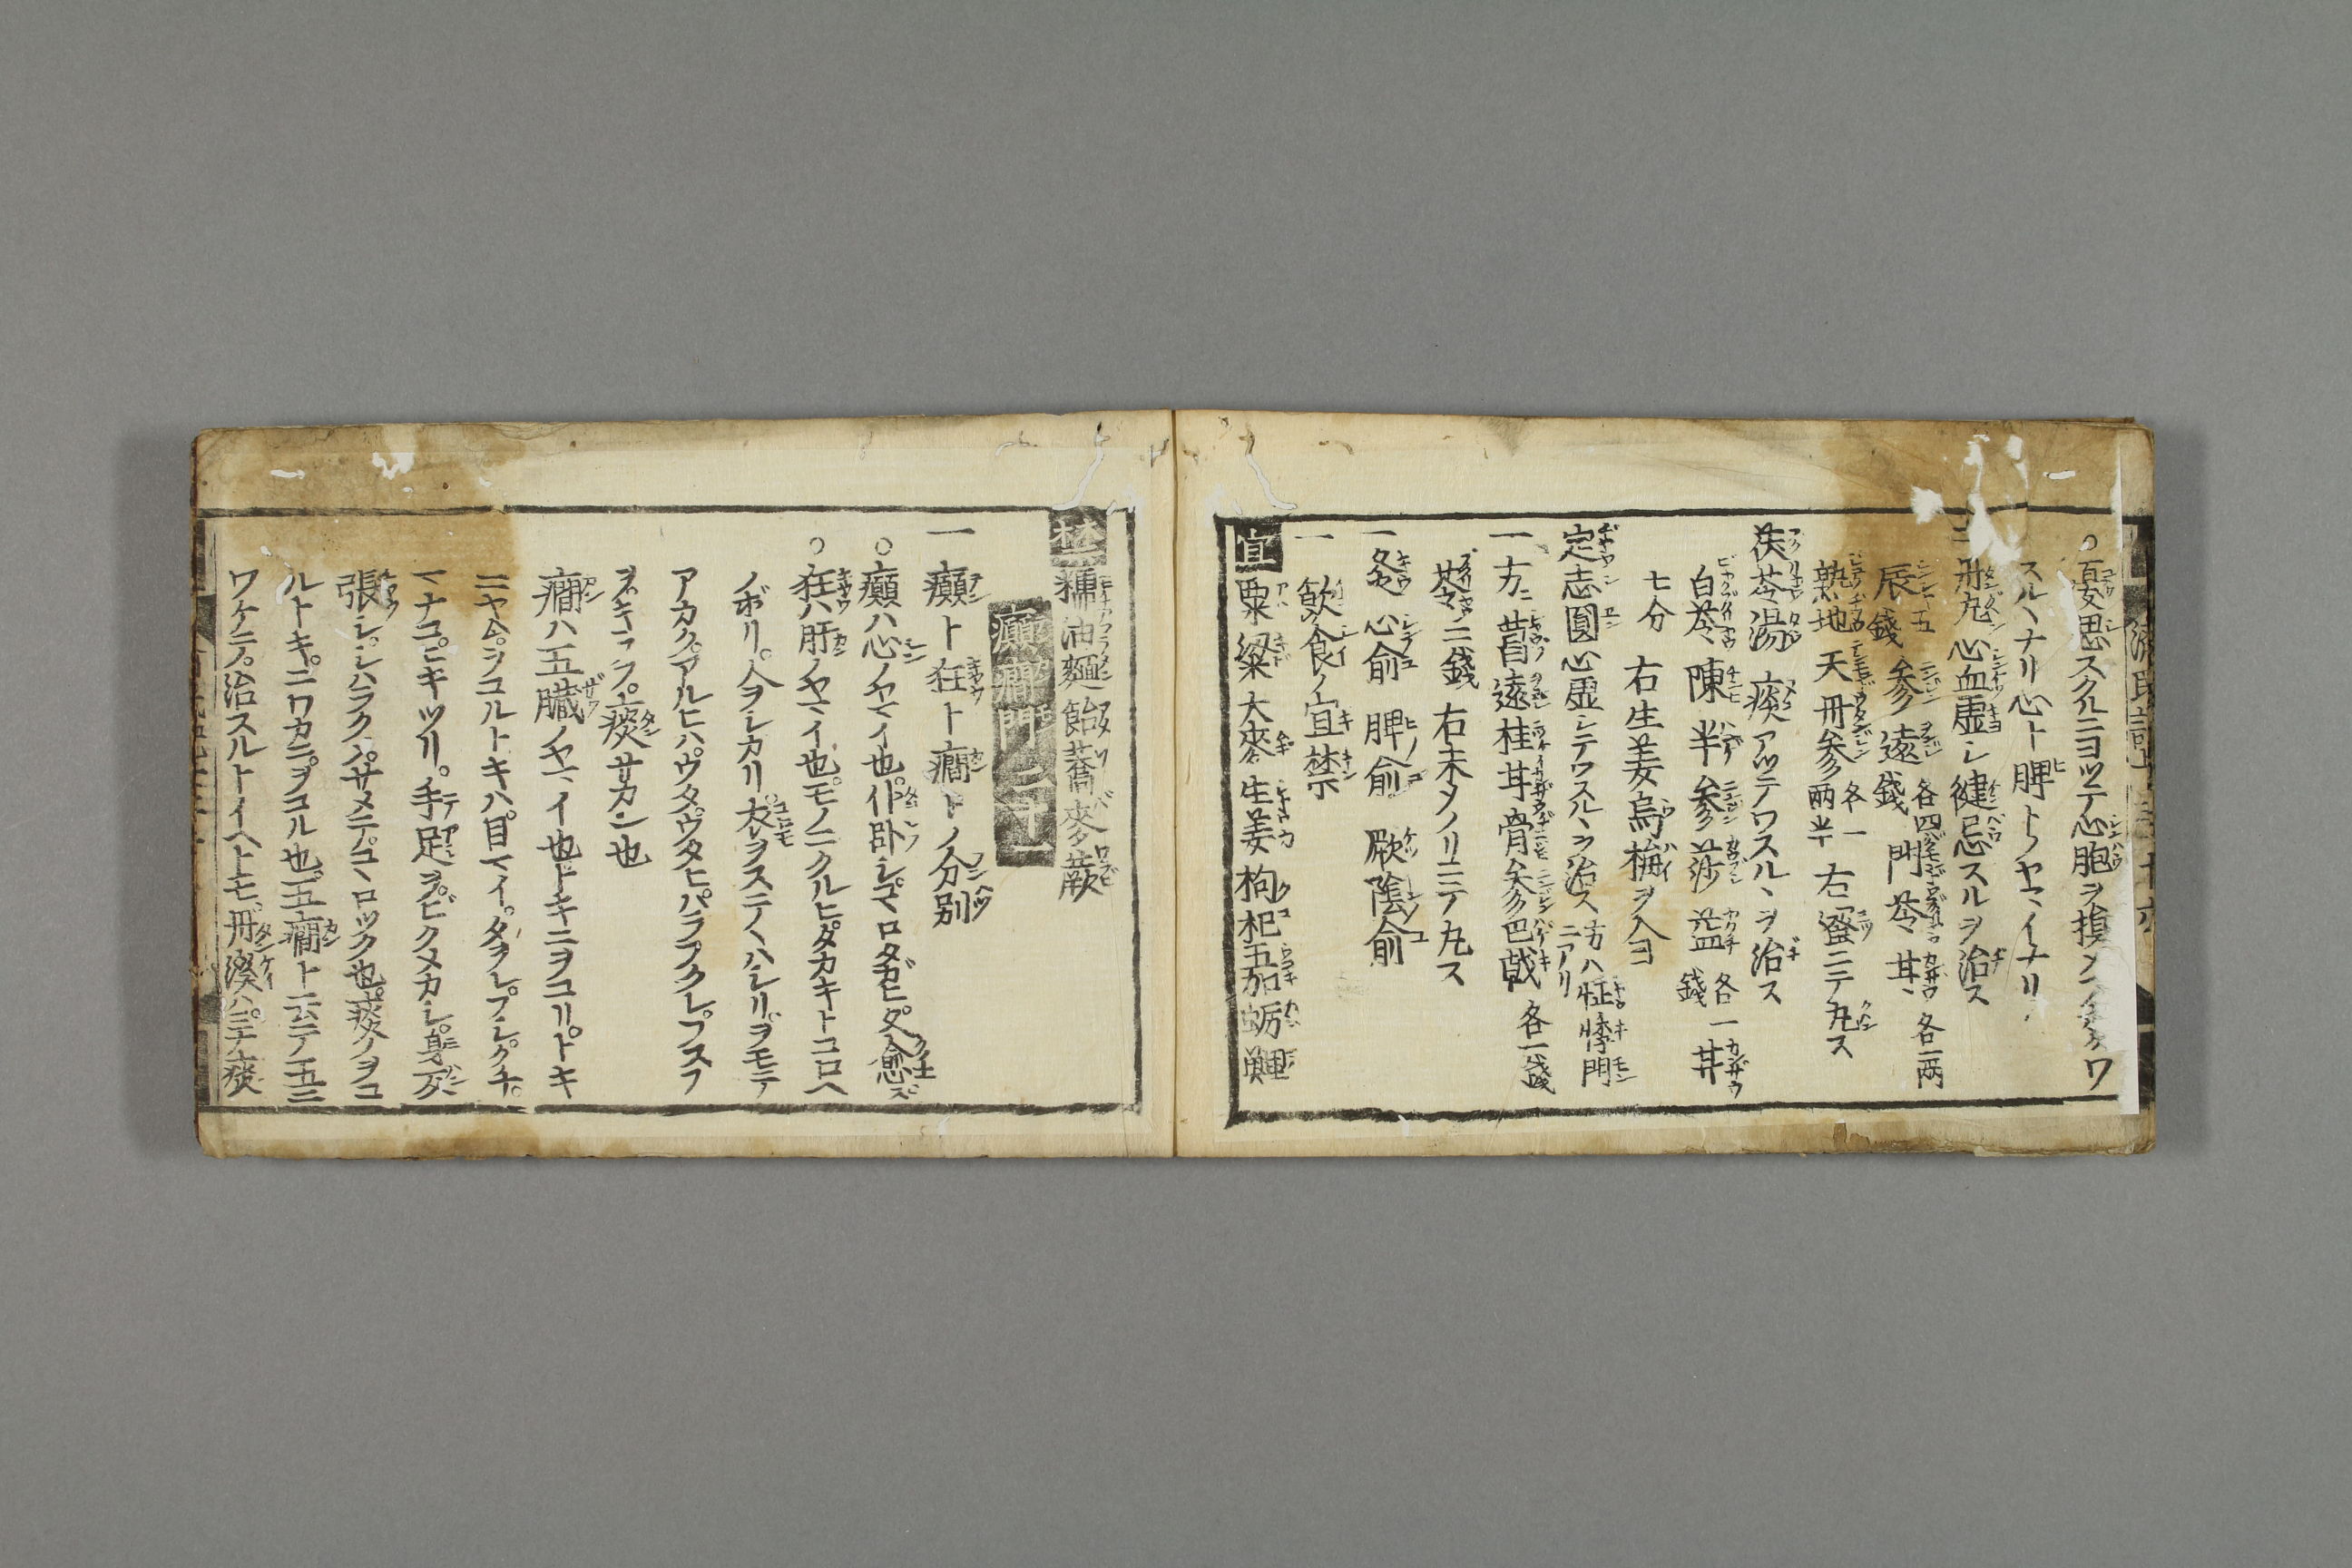 ○憂思スクルニヨツテ心胞ヲ損シ
スルヽナリ心ト脾トノヤマイナリ
二丹丸 心血虚シ健忘スルヲ治ス
辰五錢 参遠各四錢 門苓甘各一両
熟地 天 丹参各一両半 右蜜ニテ丸ス
茯苓湯 痰アツテワスルヽヲ治ス
白苓 陳 半 参 莎 益各一錢 甘
七分 右生姜烏梅ヲ入ヨ
定志圓 心虚シテワスルヽヲ治ス 方ハ怔悸門ニアリ
一方ニ 菖 遠 桂 甘 骨 参 巴戟各一錢
苓二錢 右末メノリニテ丸ス
一 灸 心俞 脾俞 厥陰俞
一 飲食ノ宜禁
宜 粟 粱 大麥 生姜 枸杞 五茄 蛎 鯉
禁 糯 油 麺 飴 蕎麥 蕨
癲癇門二十一
一 癲ト狂ト癇トノ分別
○癲ハ心ノヤマイ也仆卧シ
○狂ハ肝ノヤマイ也モノニクルヒタカキトコロヘ
ノボリ人ヲシカリ衣ヲステヽハシリヲモテ
アカクアルヒハウタウタヒハラフクレフスフ
ヲキラフ痰サカン也
癇ハ五臓ノヤマイ也トキニヲコリトキ
ニヤムヲコルトキハ目マイタヲレフシクチ
マナコニキツリ手足ヲビクメカシ身
張シシハラクハサメテコヽロツク也痰ヲコ
ルトキニワカニヲコル也五癇ト云テ五ニ
ワケテ治スルトイヘトモ丹渓ハ